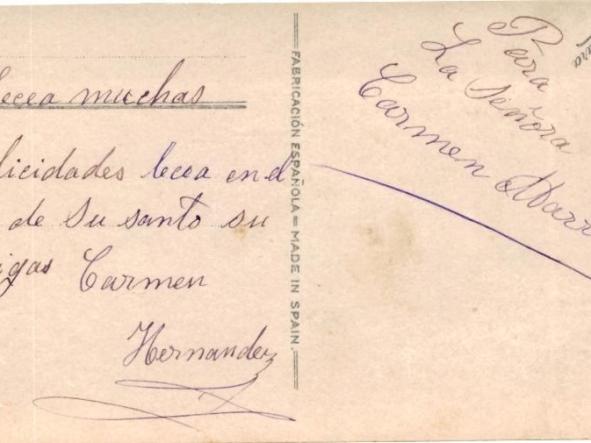 muchas
licidades lecea en el
de Su santo su
igas Carmen
Hernandez
FABRICACIÓN ESPAÑOLA = MADE IN SPAIN.
Para
La Señora
Carmen